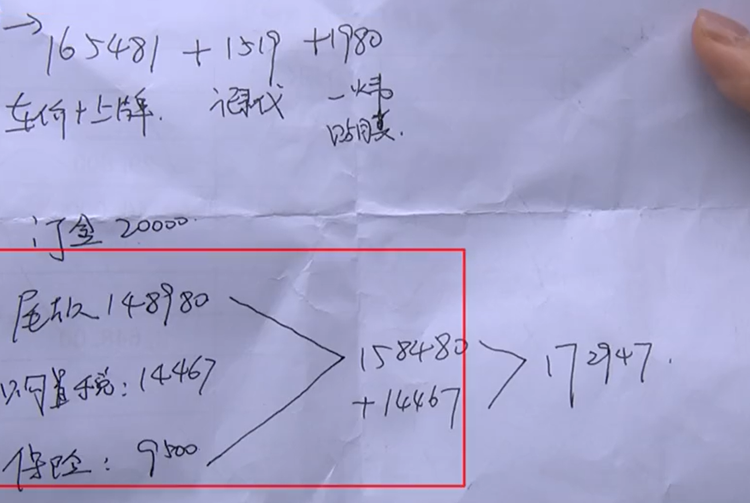 →165481 + 1519 +1980
车价+上牌. 记录仪 一炜
贴膜.
订金 20000.
尾款 148980
购置税: 14467
保险: 9500
158480
+14467
172947.